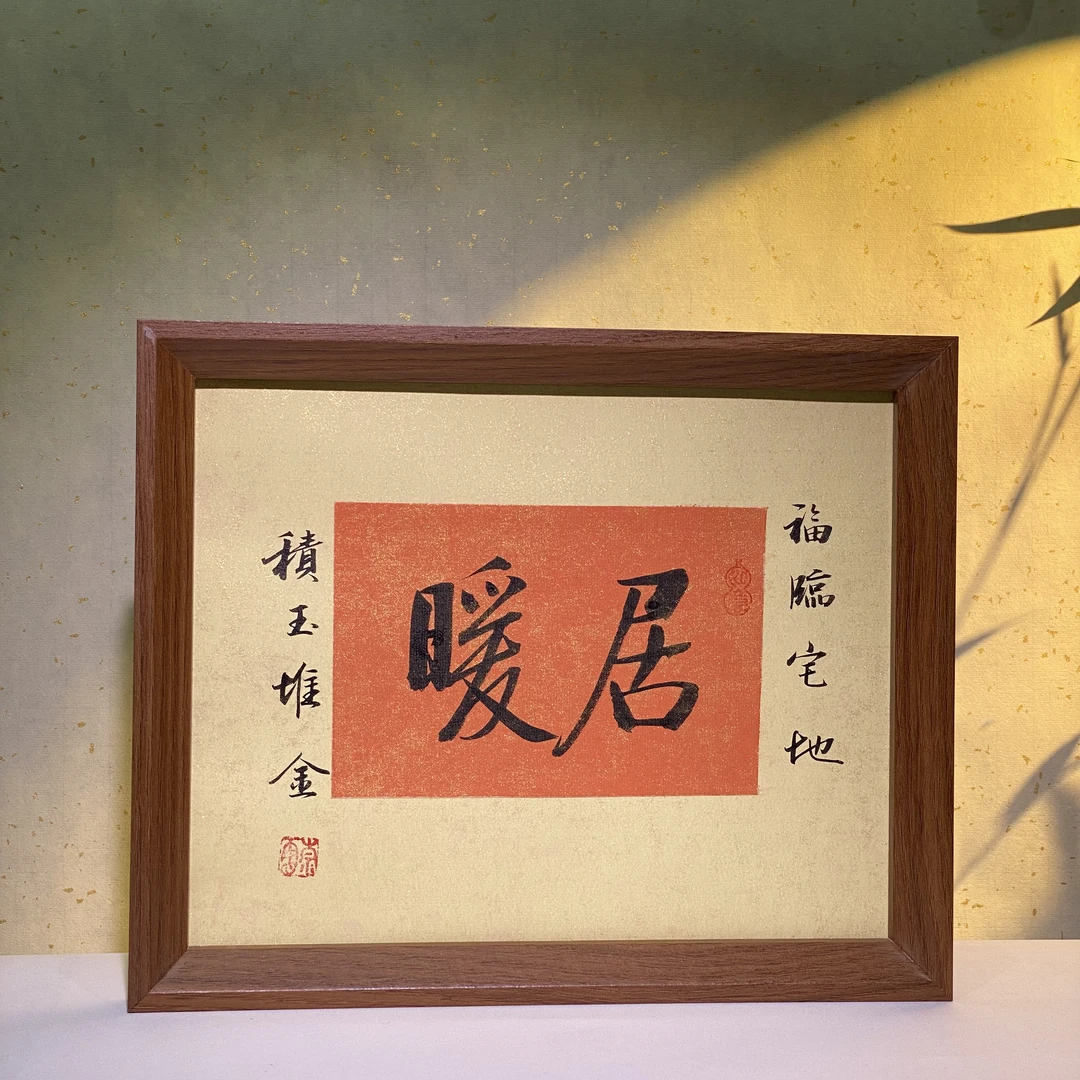 福臨宅地
暖居
積玉堆金